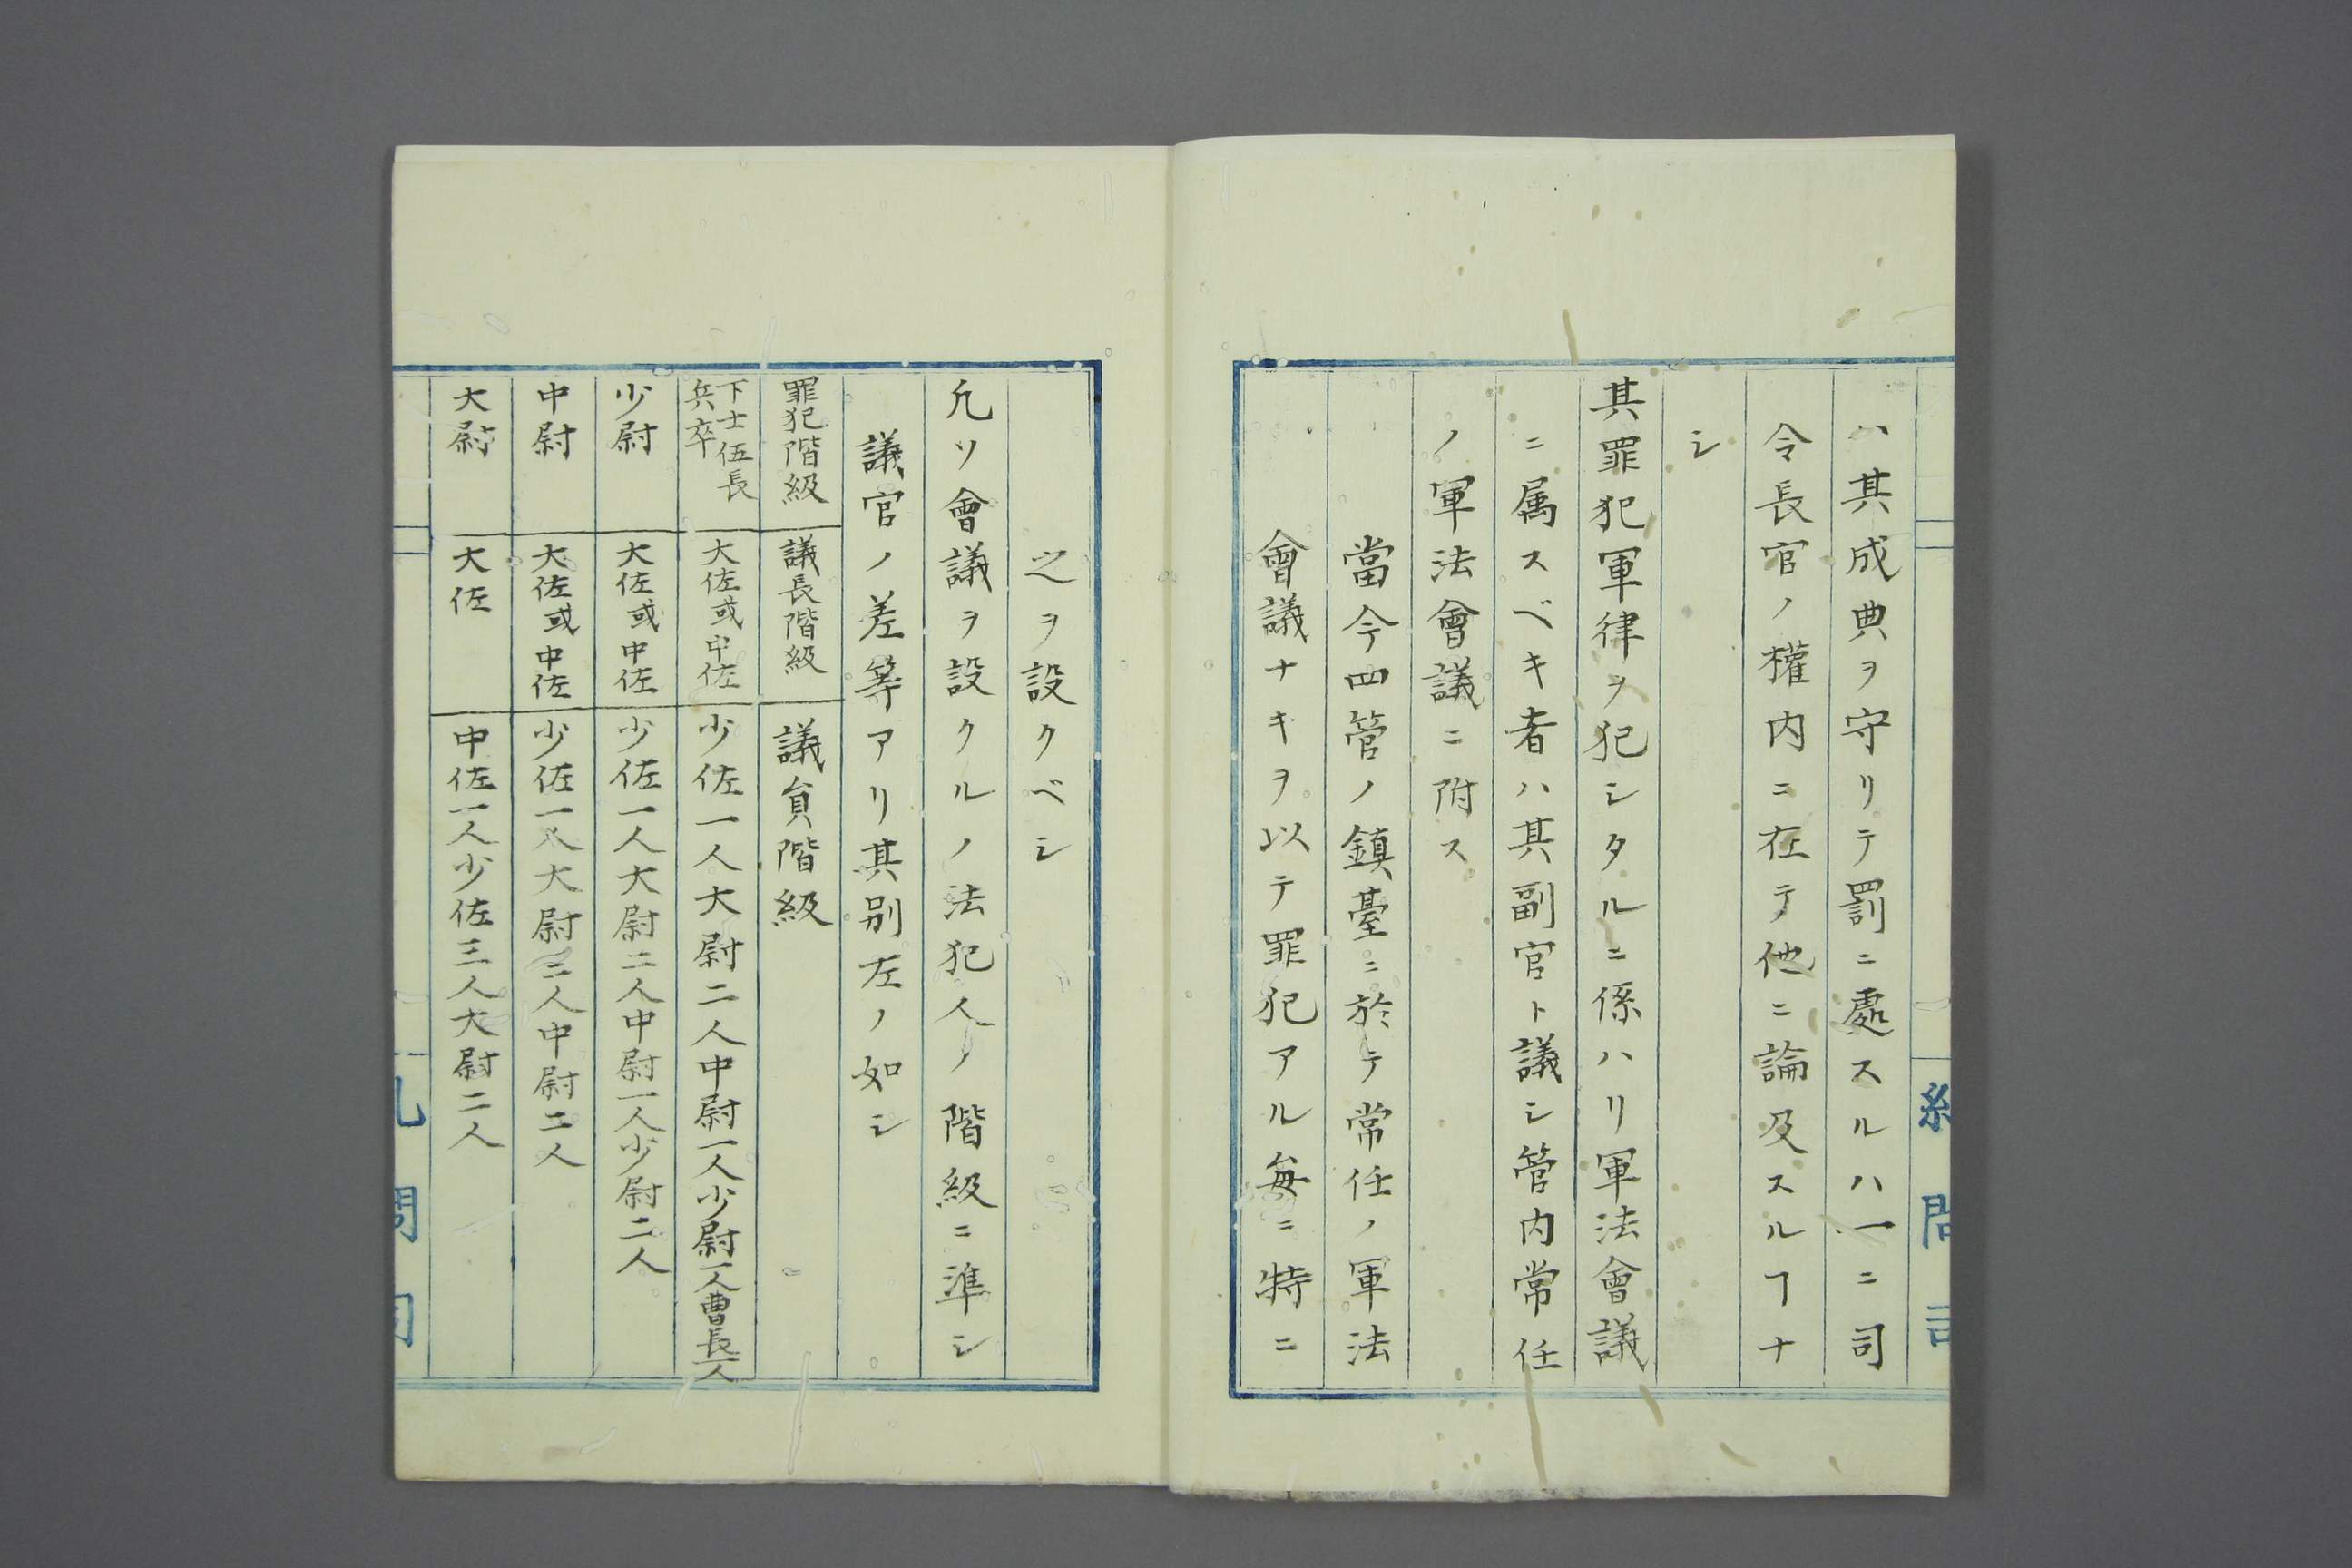 ハ其成典ヲ守リテ罰ニ處スルハ一ニ司
令長官ノ權内ニ在テ他ニ論及スルヿナ
シ
其罪犯軍律ヲ犯シタルニ係ハリ軍法會議
ニ属スベキ者ハ其副官ト議シ管内常任
ノ軍法會議ニ附ス
當今四管ノ鎮臺ニ於テ常任ノ軍法
會議ナキヲ以テ罪犯アル毎ニ特ニ
之ヲ設クベシ
凡ソ會議ヲ設クルノ法犯人ノ階級ニ準シ
議官ノ差等アリ其別左ノ如シ
罪犯階級 議長階級 議員階級
下士伍長
兵卒 大佐或中佐 少佐一人大尉二人中尉一人少尉一人曹長一人
少尉 大佐或中佐 少佐一人大尉二人中尉一人少尉二人
中尉 大佐或中佐 少佐一人大尉三人中尉二人
大尉 大佐 中佐一人少佐三人大尉二人